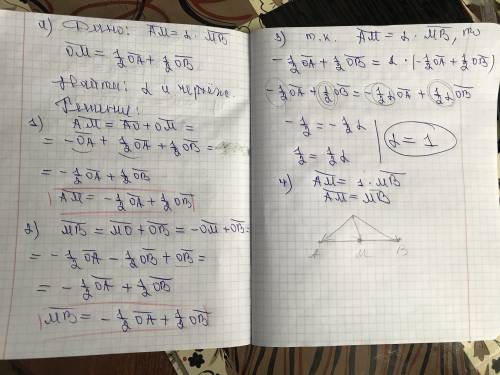 а) Дано: AM̅ = α · MB̅
OM̅ = 1/2 OA̅ + 1/2 OB̅
Найти: α и чертёж.
Решение:
1) AM̅ = AO̅ + OM̅ =
= -OA̅ + 1/2 OA̅ + 1/2 OB̅ =
= -1/2 OA̅ + 1/2 OB̅
AM̅ = -1/2 OA̅ + 1/2 OB̅
2) MB̅ = MO̅ + OB̅ = -OM̅ + OB̅ =
= -1/2 OA̅ - 1/2 OB̅ + OB̅ =
= -1/2 OA̅ + 1/2 OB̅
MB̅ = -1/2 OA̅ + 1/2 OB̅
3) т.к. AM̅ = α · MB̅, то
-1/2 OA̅ + 1/2 OB̅ = α · (-1/2 OA̅ + 1/2 OB̅)
-1/2 OA̅ + 1/2 OB̅ = -1/2 α OA̅ + 1/2 α OB̅
-1/2 = -1/2 α
1/2 = 1/2 α
α = 1
4) AM̅ = 1 · MB̅
AM̅ = MB̅
A M B